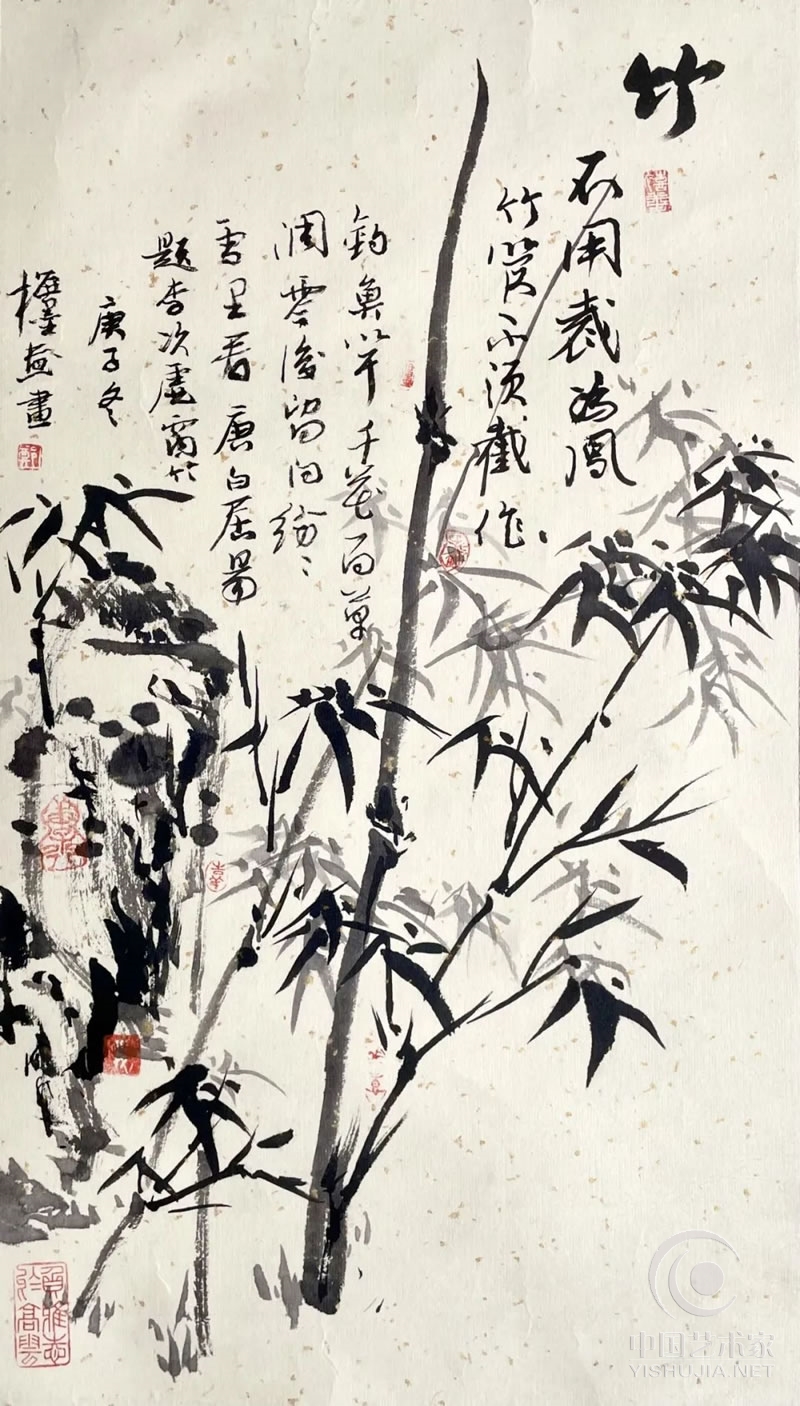 竹
不用裁为鳳
竹管不須截作
釣魚竿千花百草
凋零後留向紛〻
雪里看唐白居易
題李次雲窗竹
庚子冬
畫
中国艺术家
YISHUJIA.NET